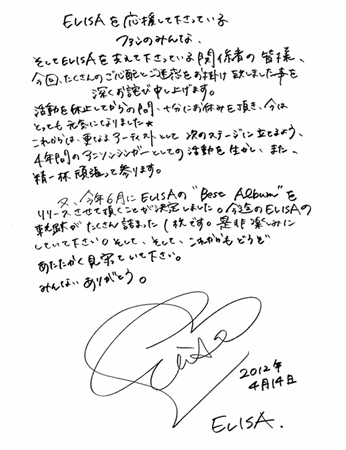 ELISAを応援して下さっている
ファンのみんな、
そしてELISAを支えて下さっている関係者の皆様、
今回、たくさんのご心配とご迷惑をお掛け致しました事を
深くお詫び申し上げます。
活動を休止してからの間、十分にお休みを頂き、今は
とっても元気になりました★
これからは、更なるアーティストとして次のステージに立てるよう、
4年間のアニソンシンガーとしての活動を生かし、また、
精一杯頑張って参ります。
又、今年6月にELISAの"Best Album"を
リリースさせて頂くことが決定しました。今迄のELISAの
軌跡がたくさん詰まった1枚です。是非楽しみに
していて下さい。そして、そして、これからもどうぞ
あたたかく見守っていて下さい。
みんないありがとう。
2012年
4月14日
ELISA.